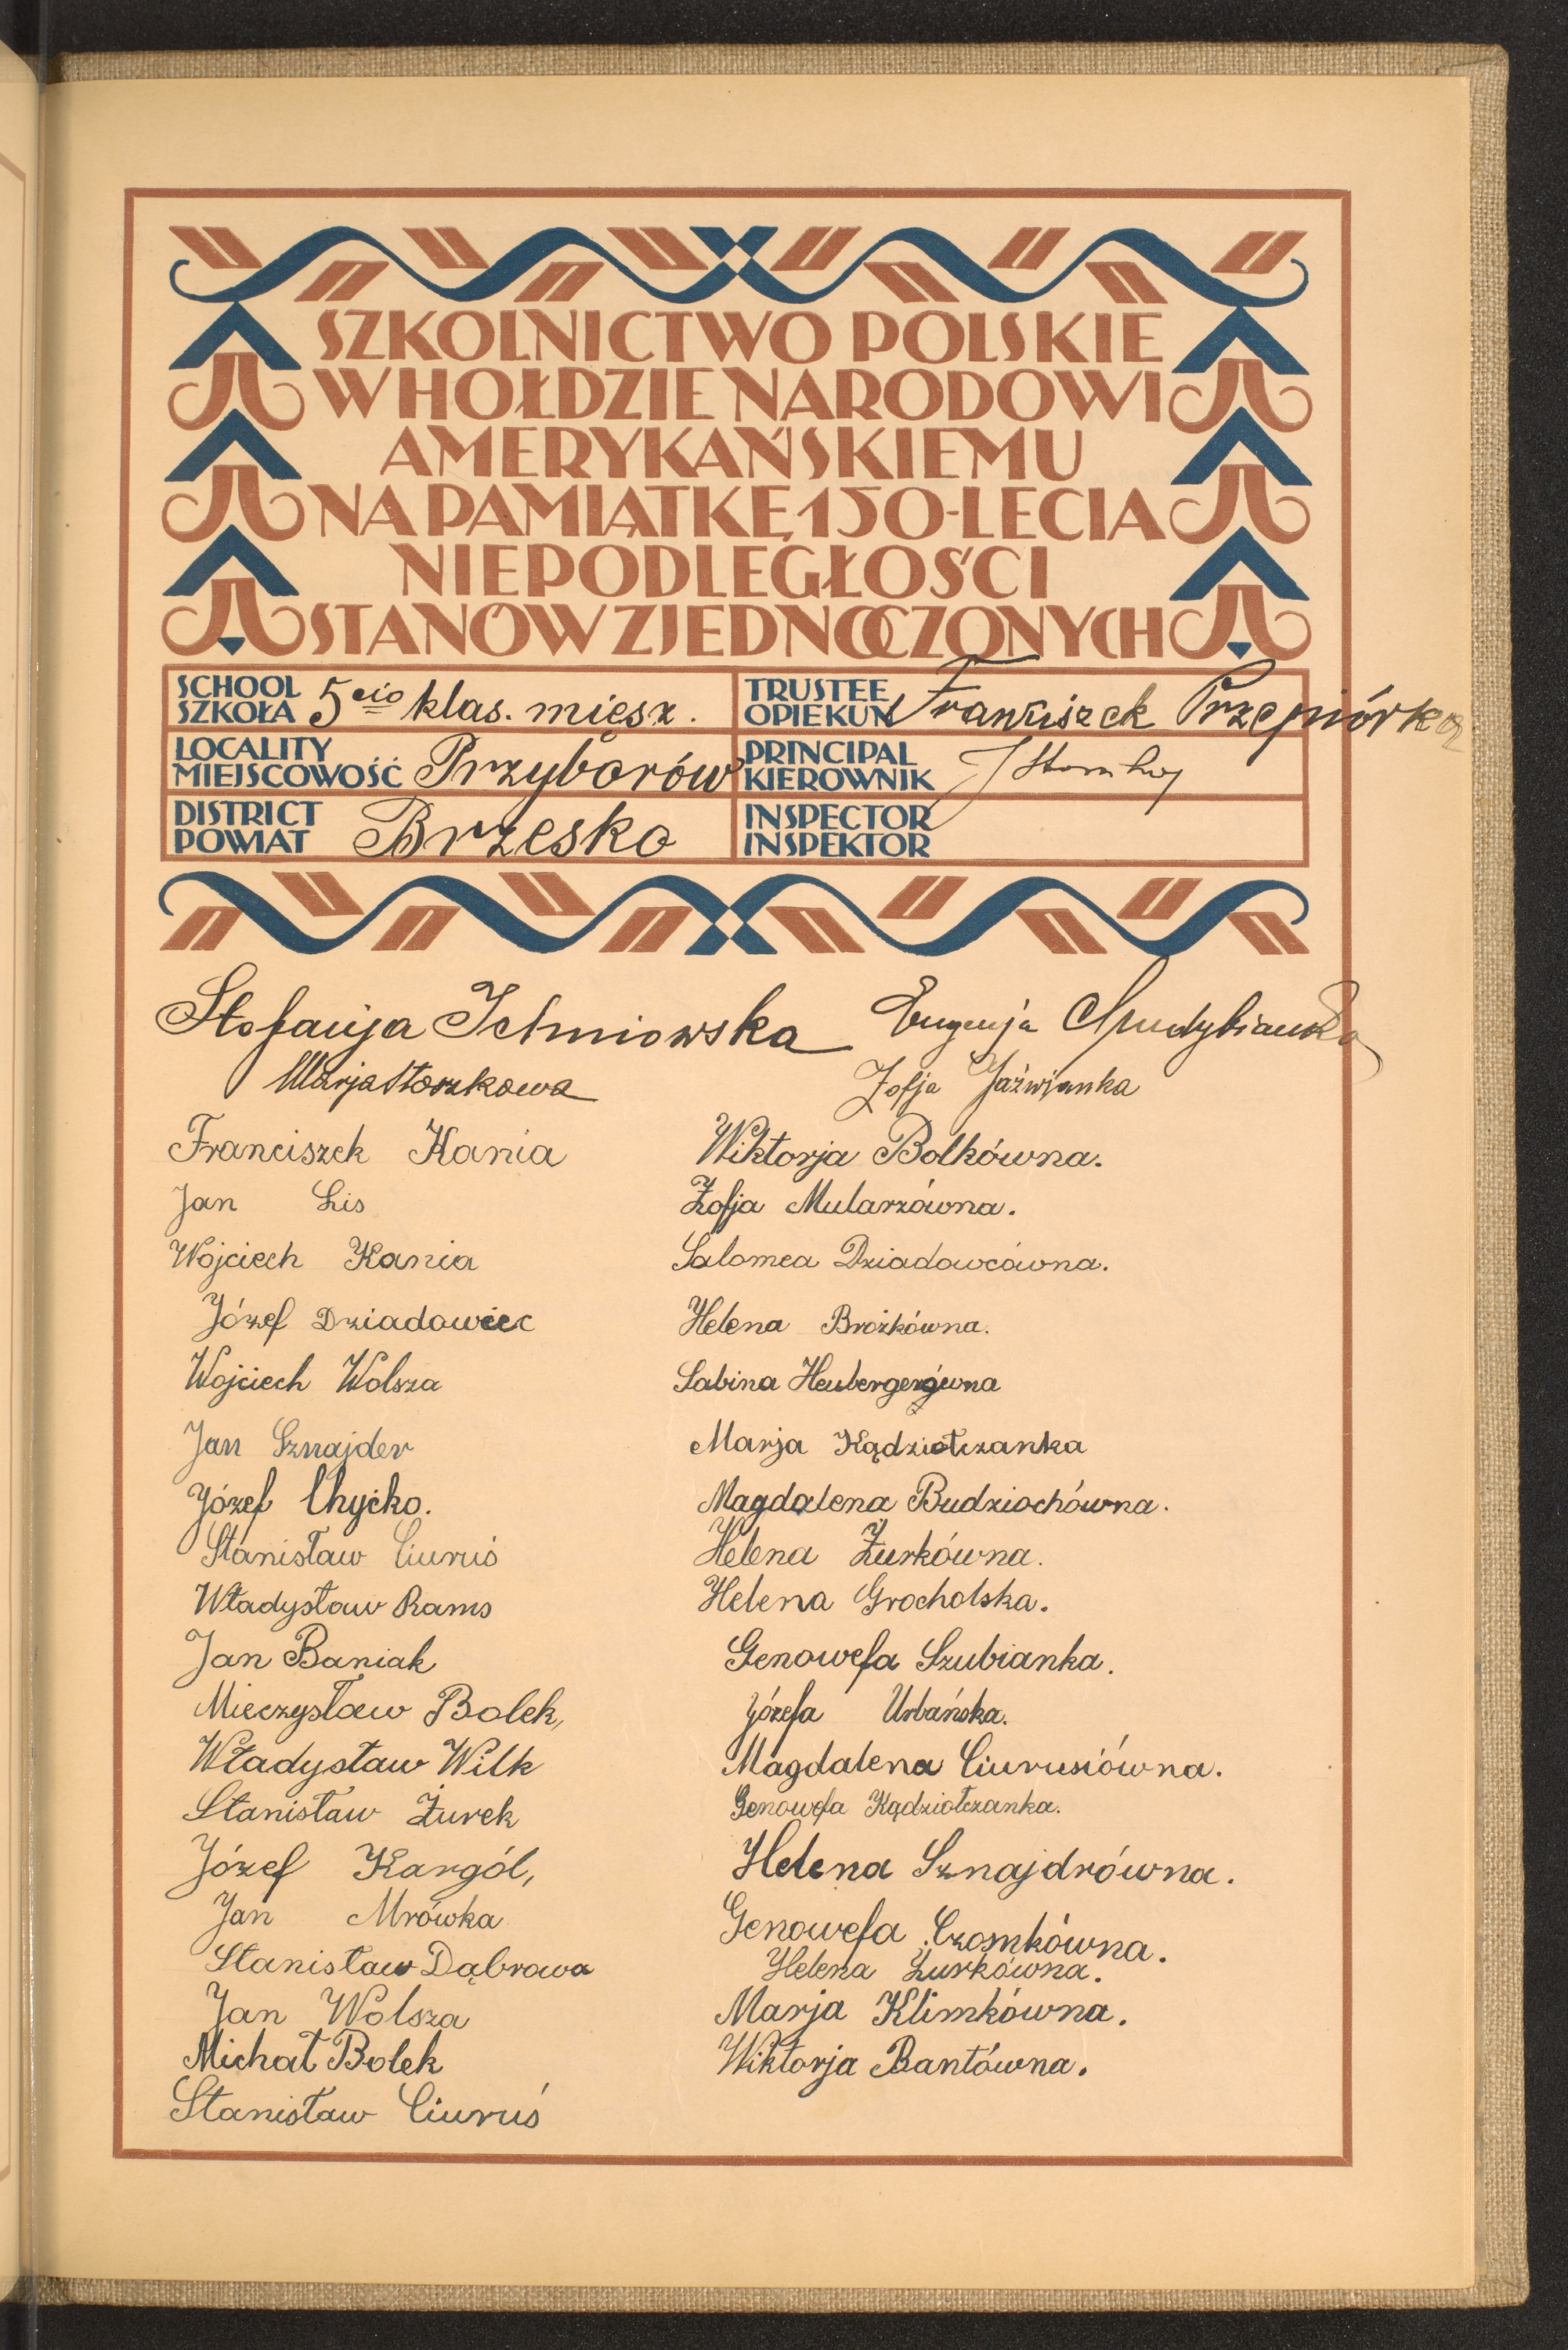 SZKOLNICTWO POLSKIE
W HOŁDZIE NARODOWI
AMERYKAŃSKIEMU
NA PAMIĄTKĘ 150-LECIA
NIEPODLEGŁOŚCI
STANÓW ZJEDNOCZONYCH
SCHOOL
SZKOŁA 5cio klas. miesz.
LOCALITY
MIEJSCOWOŚĆ Przyborów
DISTRICT
POWIAT Brzesko
TRUSTEE
OPIEKUN Franciszek Przepiórka
PRINCIPAL
KIEROWNIK
INSPECTOR
INSPEKTOR
Stefanja Ichniowska
Eugenja
Marja Storzkowa
Zofja Jaźwianka
Franciszek Kania
Jan Lis
Wojciech Kania
Józef Dziadowiec
Wojciech Wolsza
Jan Sznajder
Józef Chyćko.
Stanisław Ciuruś
Władysław Rams
Jan Baniak
Mieczysław Bolek,
Władysław Wilk
Stanisław Żurek
Józef Kargól,
Jan Mrówka
Stanisław Dąbrowa
Jan Wolsza
Michał Bolek
Stanisław Ciuruś
Wiktorja Bolkówna.
Zofja Mularzówna.
Salomea Dziadowcówna.
Helena Brożkówna.
Sabina Heubergerówna
Marja Kądziołczanka
Magdalena Budziochówna.
Helena Żurkówna.
Helena Grocholska.
Genowefa Szubianka.
Józefa Urbańska.
Magdalena Ciurusiówna.
Genowefa Kądziołczanka.
Helena Sznajdrówna.
Genowefa Czosnkówna.
Helena Żurkówna.
Marja Klimkówna.
Wiktorja Bantówna.